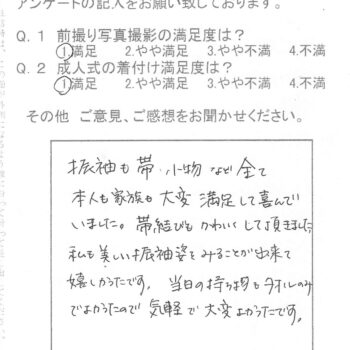 アンケートの記入をお願い致しております。
Q.1 前撮り写真撮影の満足度は？
①満足 2.やや満足 3.やや不満 4.不満
Q.2 成人式の着付け満足度は？
①満足 2.やや満足 3.やや不満 4.不満
その他 ご意見、ご感想をお聞かせください。
振袖も帯・小物など全て
本人も家族も大変満足して喜んで
いました。帯結びもかわいくして頂きました
私も美しい振袖姿をみることが出来て
嬉しかったです。当日の持ち物もタオルのみ
でよかったので気軽で大変よかったです。